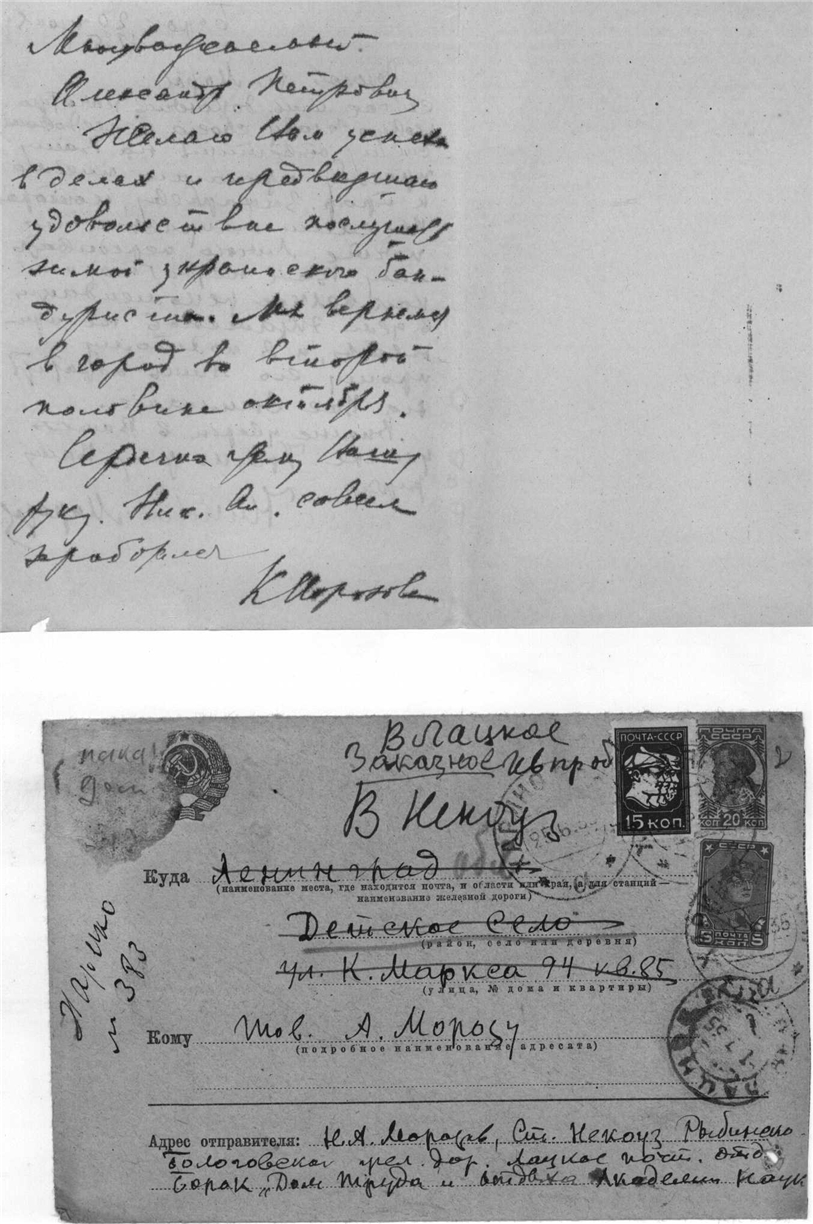 Многоуважаемый.
Александр Петрович
Желаю Вам успеха
в делах и предвкушаю
удовольствие послушать
зимой украинского бан-
дуриста. Мы вернемся
в город во второй
половине октября.
Сердечно жму Вашу
руку. Ник. Ал. совсем
заработался
К Морозова
В Лацкое
Заказное
В Некоуз
ПОЧТА-СССР
15 КОП.
ПОЧТА
СССР
КОП 20 КОП
СССР
5 ПОЧТА 5
КОП.
Куда Ленинград
(наименование места, где находится почта, и области или края, а для станций—
наименование железной дороги)
Детское Село
(район, село или деревня)
ул. К. Маркса 94 кв. 85
(улица, № дома и квартиры)
Кому тов. А. Морозу
(подробное наименование адресата)
Адрес отправителя: Н.А. Морозов, Ст. Некоуз Рыбинско-
Бологовская жел. дор. Лацкое почт. отд.
Борок „Дом труда и отдыха Академии Наук